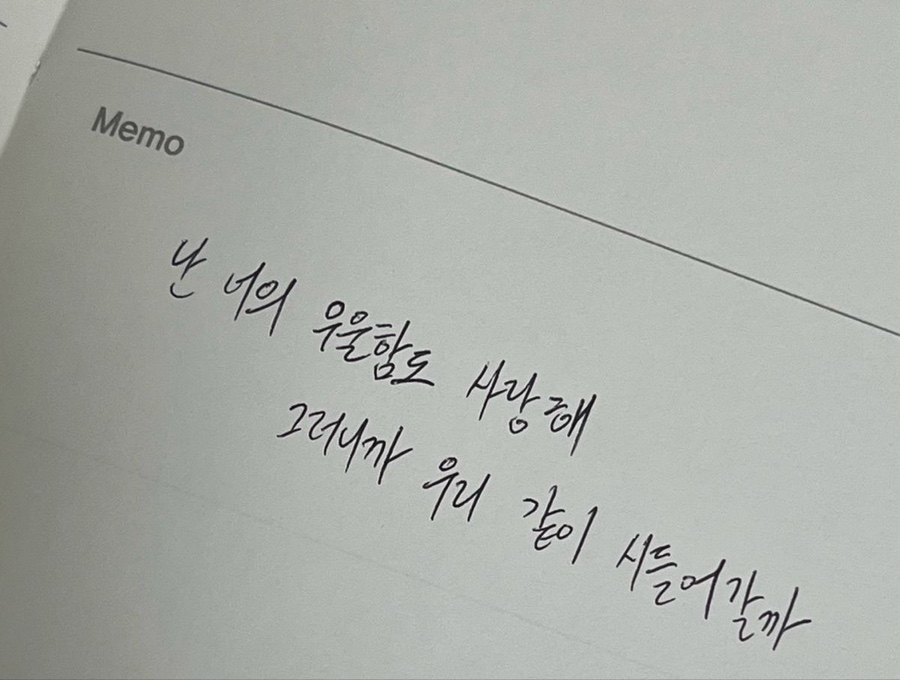 Memo
난 너의 우울함도 사랑해
그러니까 우리 같이 시들어갈까